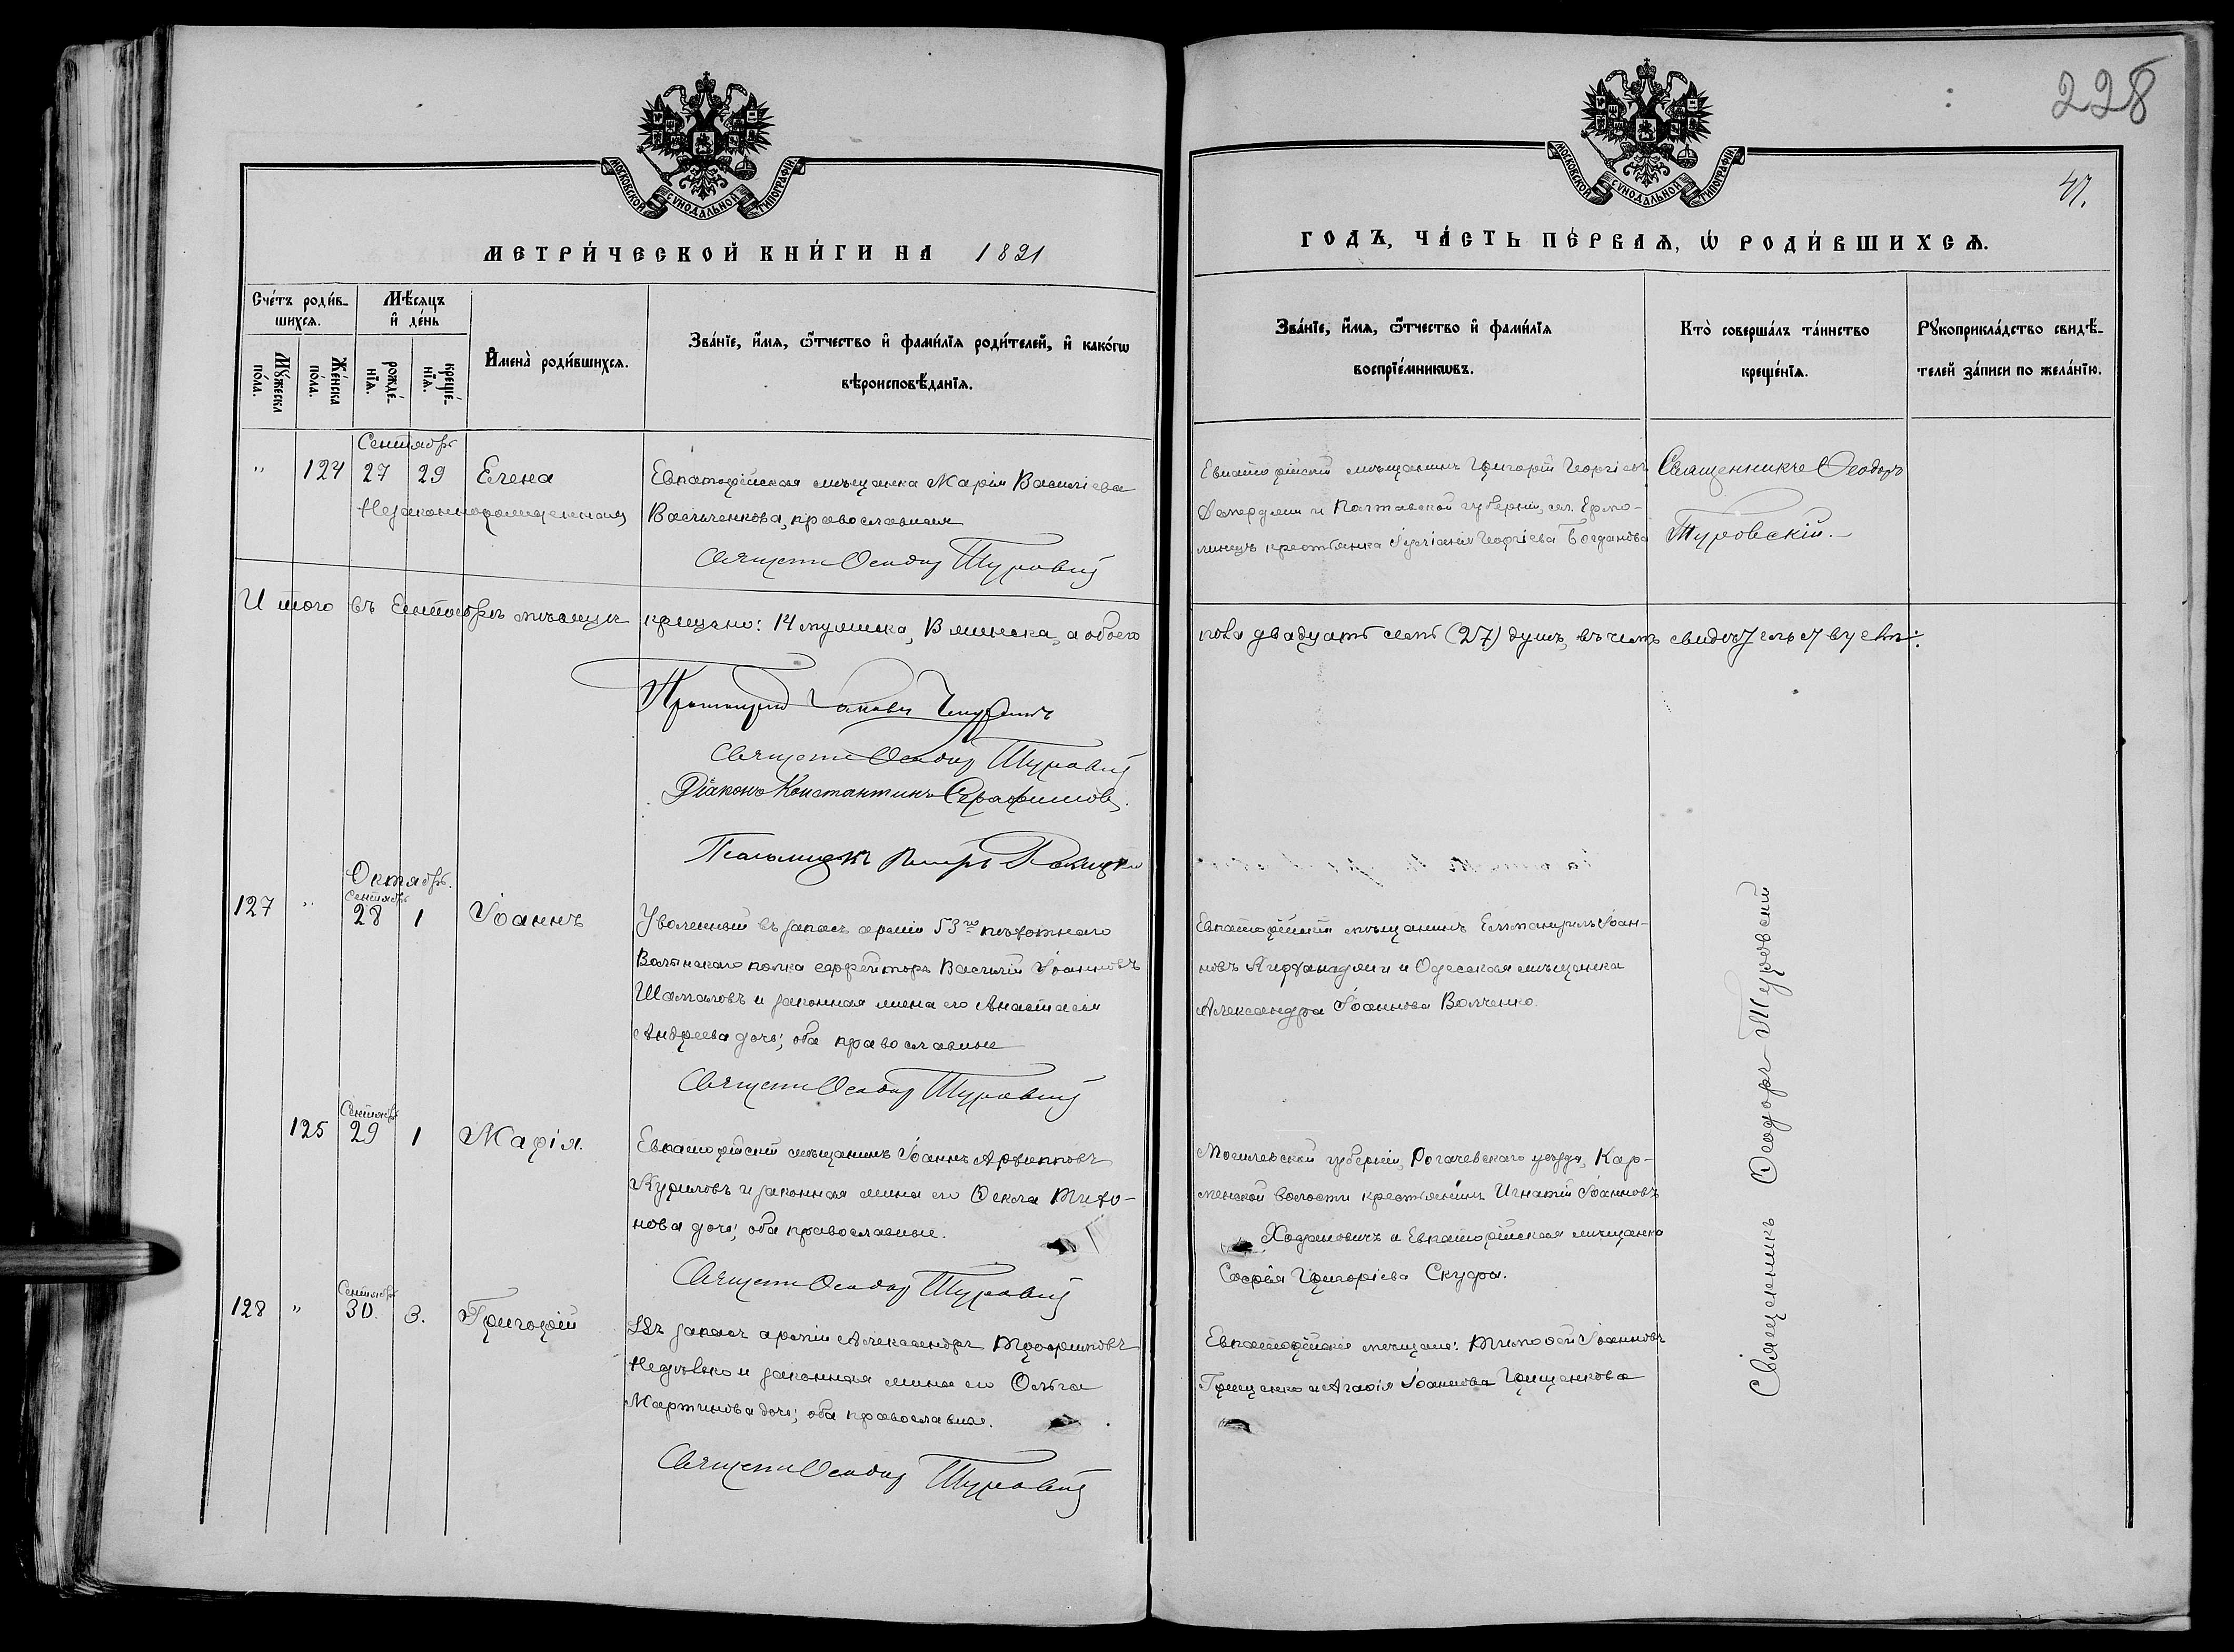 МОСКОВСКОЙ СѴНОДАЛЬНОЙ ТИПОГРАФІИ.
МЕТРИ́ЧЕСКОЙ КНИ́ГИ НА 1891
Сче́тъ роди́в-
шихсѧ.
Мѣ́сѧцъ
и҆ де́нь
Мꙋ́жеска
по́ла.
Же́нска
по́ла.
рожде́-
нїѧ.
креще́-
нїѧ.
И҆мена̀ роди́вшихсѧ.
Зва́нїе, и҆́мѧ, ѻ҆́тчество и҆ фами́лїѧ роди́телей, и҆ како́гѡ
вѣроисповѣ́данїѧ.
Сентябрь
" 124 27 29 Елена
Незаконнорожденная
Евпаторійская мѣщанка Марія Василіева
Васильченкова, православная
Священ Ѳеодор Туровскій
Итого въ Сентябрѣ мѣсяцѣ крещено: 14 мужеска, 13 женска, а обоего
Протоіерей Іаковъ
Священ Ѳеодор Туровскій
Діаконъ Константинъ Серафимовъ.
Псаломщикъ Петръ
Октябрь.
Сентябрь
127 " 28 1 Іоаннъ
Уволенный въ запасъ арміи 53го пѣхотнаго
Волынскаго полка ефрейторъ Василій Іоанновъ
Шамаловъ и законная жена его Анастасія
Андреева дочь; оба православные
Священ Ѳеодор Туровскій
Сентябрь
125 29 1 Марія.
Евпаторійскій мѣщанинъ Іоаннъ Архипповъ
Куриловъ и законная жена его Ѳекла Тихо-
нова дочь; оба православные.
Священ Ѳеодор Туровскій
Сентябрь
128 " 30. 3. Григорій
Въ запасѣ арміи Александръ Трофимовъ
и законная жена его Ольга
Мартинова дочь; оба православные.
Священ Ѳеодор Туровскій
228
МОСКОВСКОЙ СѴНОДАЛЬНОЙ ТИПОГРАФІИ.
47.
ГОДЪ, ЧА́СТЬ ПЕ́РВАѦ, Ѡ҆ РОДИ́ВШИХСѦ.
Зва́нїе, и҆́мѧ, ѻ҆́тчество и҆ фами́лїѧ
воспрїе́мникѡвъ.
Кто̀ соверша́лъ та́инство
креще́нїѧ.
Рꙋкоприкла́дство свидѣ́-
телей за́писи по жела́нїю.
Евпаторійскій мѣщанинъ Григорій Георгіевъ
и Полтавской губерніи, сел. Ермо-
линецъ крестьянка Іуліанія Георгіева Богданова
Священникъ Ѳеодоръ
Туровскій.
пола двадцать семь (27) душъ, въ чемъ свидѣтельствуемъ:
Евпаторійскій мѣщанинъ Еммануилъ Іоан-
новъ и Одесская мѣщанка
Александра Іоаннова Волченко.
Могилевской губерніи, Рогачевскаго уѣзда, Кар-
пенской волости крестьянинъ Игнатій Іоанновъ
Ходановичъ и Евпаторійская мѣщанка
Софія Григоріева Скудра.
Евпаторійскіе мѣщане: Тимоѳей Іоанновъ
Грищенко и Агаѳія Іоаннова Грищенкова
Священникъ Ѳеодоръ Туровскій